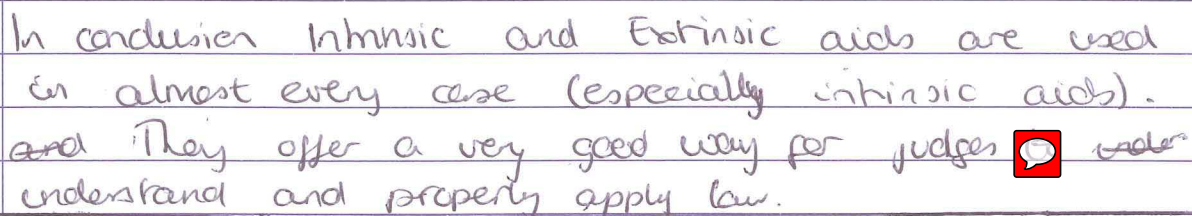 In conclusion Intrinsic and Extrinsic aids are used
in almost every case (especially intrinsic aids).
and They offer a very good way for judges under
understand and properly apply law.